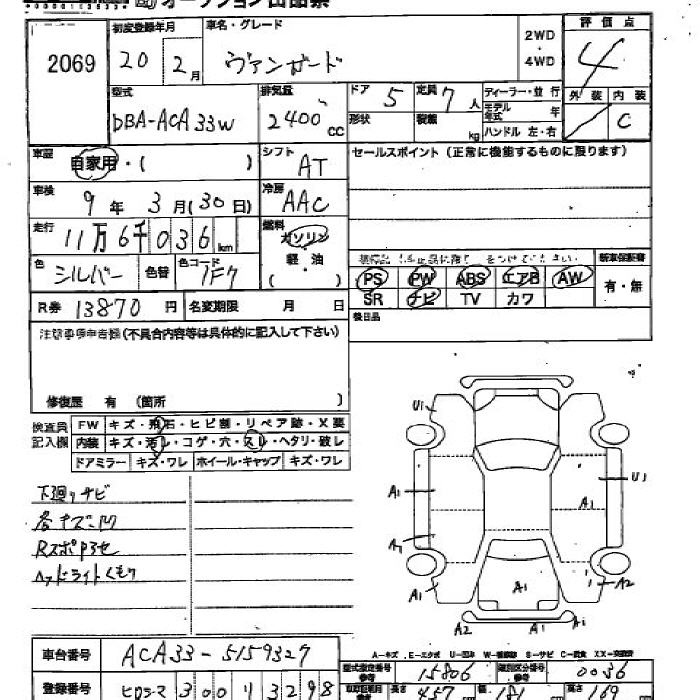 オークション出品票
2069
初度登録年月
20 2月
車名・グレード
ヴァンガード
2WD
・
4WD
評価点
4
型式
DBA-ACA33W
排気量
2400 CC
ドア 5
定員 7人
形状
積載 kg
ディーラー・並行
モデル年式 年
ハンドル 左・右
外装 内装
C
車歴
自家用・( )
シフト
AT
セールスポイント(正常に機能するものに限ります)
車検
9年 3月(30日)
冷房
AAC
走行
11万6千036km
燃料
ガソリン
軽・油
( ・ )
色
シルバー
色替
色コード
1F7
新車保証書
有・無
PS PW ABS エアB AW
SR ナビ TV カワ
R券 13870円
名変期限 月 日
後日品
注意事項申告欄(不具合内容等は具体的に記入して下さい)
修復歴 有(箇所 )
検査員記入欄
FW キズ・飛石・ヒビ割・リペア跡・X要
内装 キズ・汚レ・コゲ・穴・スレ・ヘタリ・破レ
ドアミラー キズ・ワレ ホイール・キャップ キズ・ワレ
下廻りサビ
各キズ凹
Rスポハゲ
ヘッドライトくもり
U1
U1
A1
A1
A1
A1
A1
A2
A2
A1
A1
A-キズ E-エクボ U-凹み W-補修跡 S-サビ C-腐食 XX-交換済
車台番号 ACA33-5159327
型式指定番号 15806
類別区分番号 0036
登録番号 ヒロシマ 300 リ 3298
長さ 457
幅 181
高さ 169